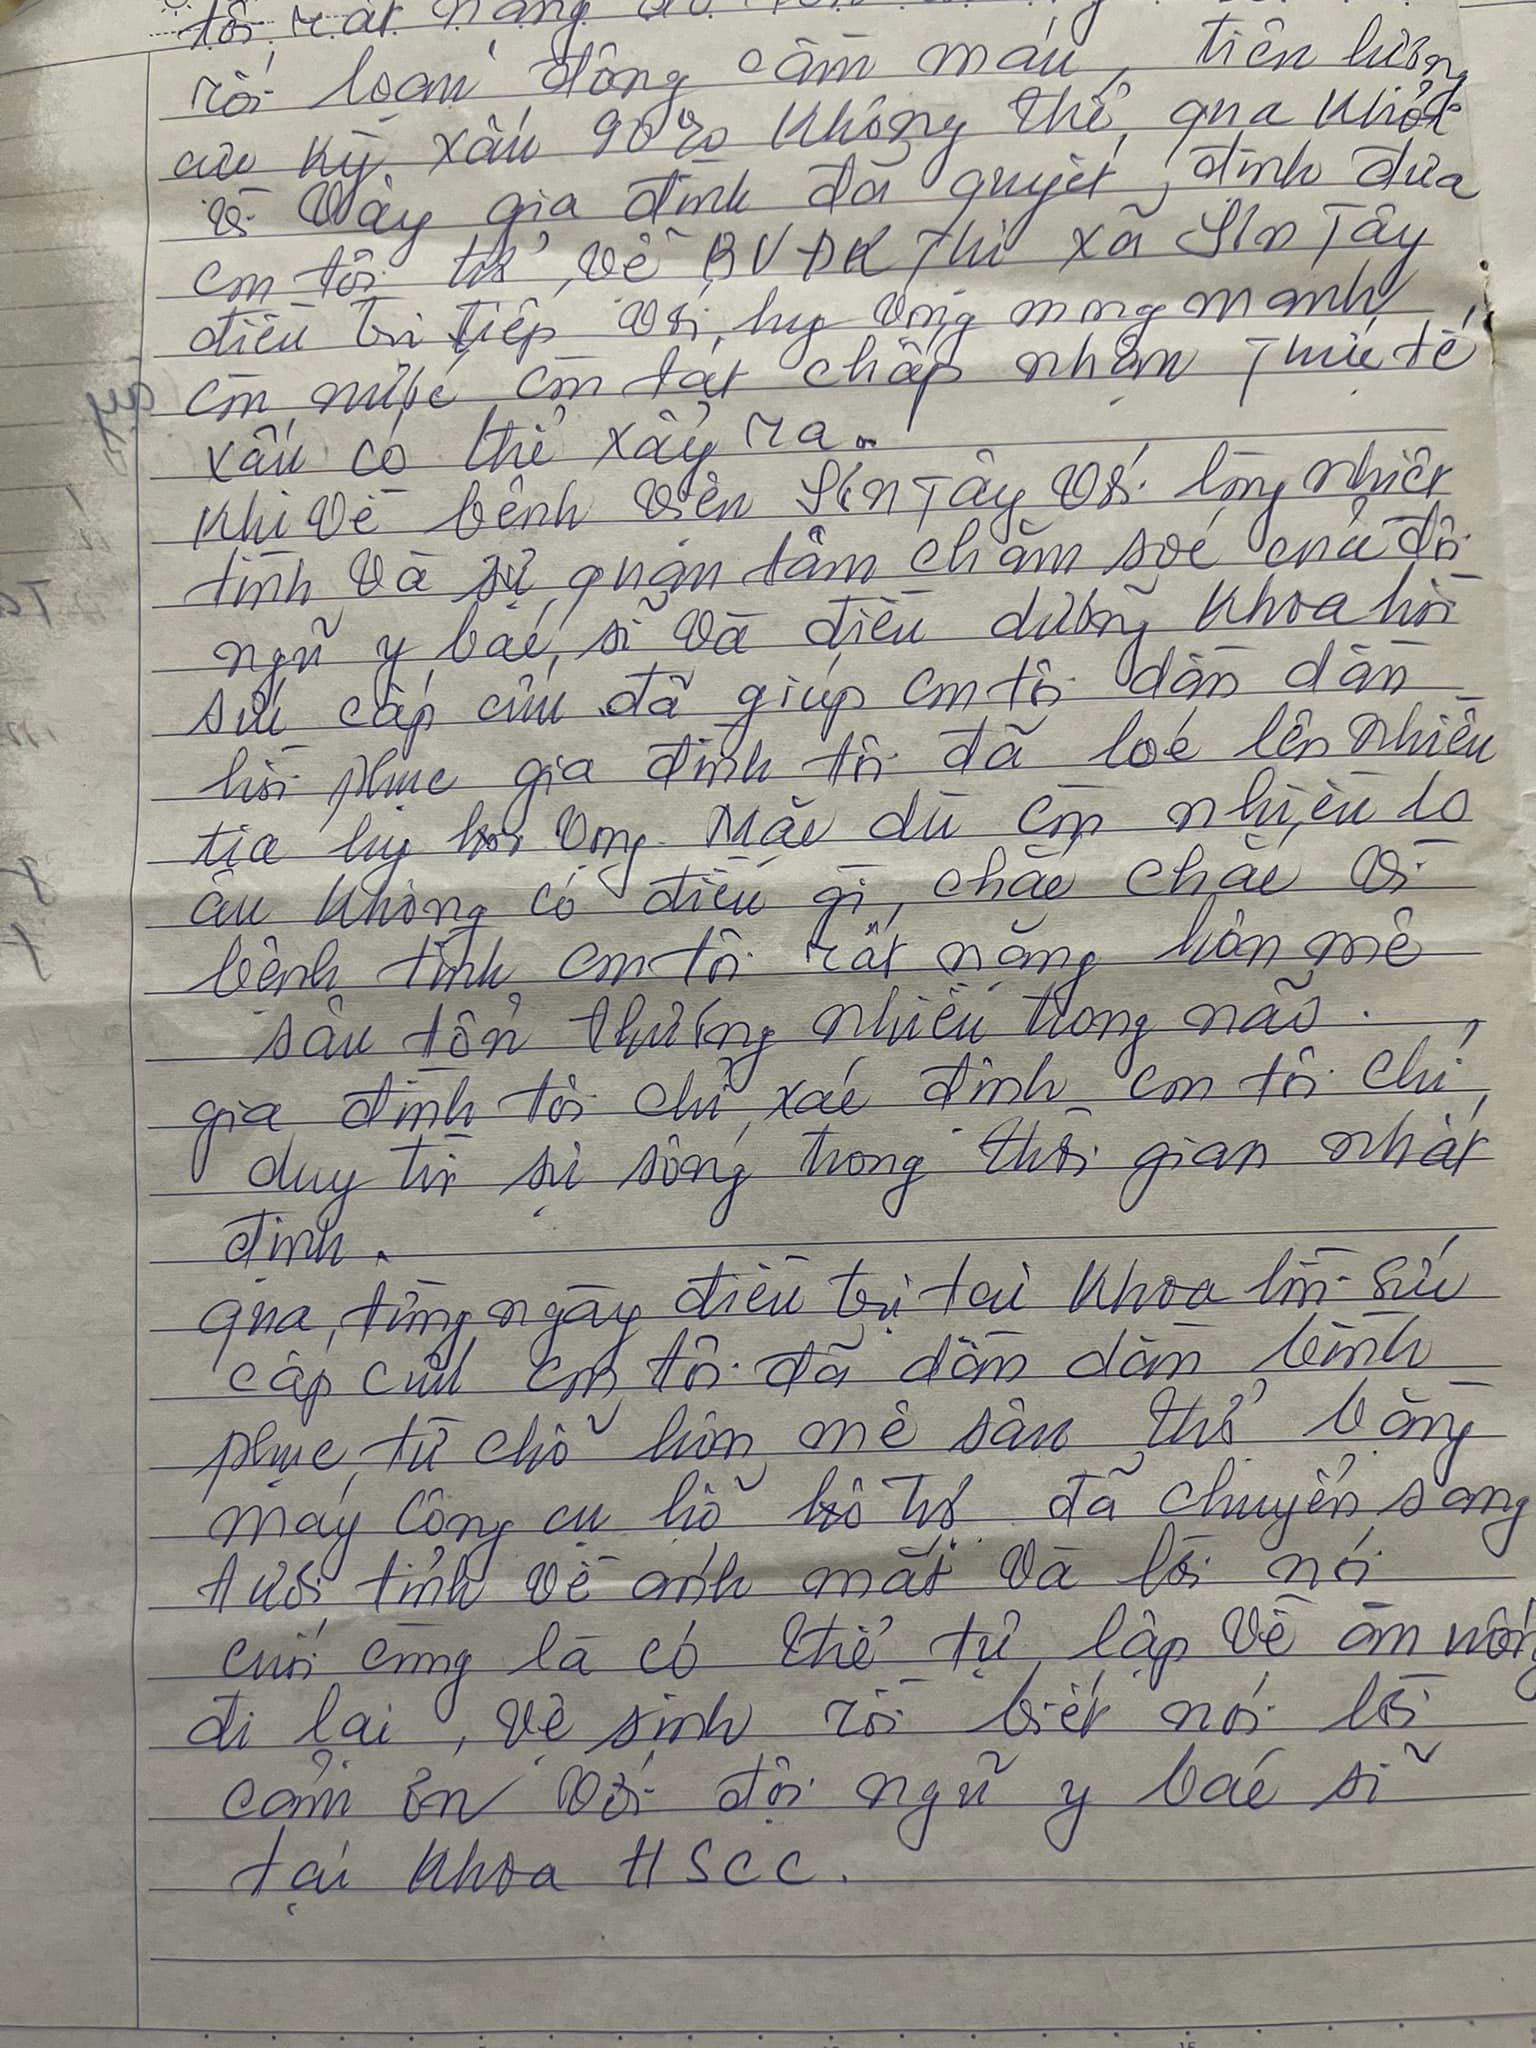 tôi rất nặng
rối loạn đông cầm máu, tiên lượng
cực kỳ xấu 90% không thể qua khỏi
vì vậy gia đình đã quyết định đưa
con tôi trở về BVĐK Thị xã Sơn Tây
điều trị tiếp với hy vọng mong manh
còn nước còn tát chấp nhận thực tế
xấu có thể xảy ra.
Khi về bệnh viện Sơn Tây với lòng nhiệt
tình và sự quan tâm chăm sóc của đội
ngũ y bác sĩ và điều dưỡng khoa hồi
sức cấp cứu đã giúp con tôi dần dần
hồi phục gia đình tôi đã loé lên nhiều
tia hy vọng. Mặc dù còn nhiều lo
âu không có điều gì chắc chắc vì
bệnh tình con tôi rất nặng hôn mê
sâu tổn thương nhiều trong não.
gia đình tôi chỉ xác định con tôi chỉ
duy trì sự sống trong thời gian nhất
định.
qua từng ngày điều trị tại khoa hồi sức
cấp cứu con tôi đã dần dần bình
phục từ chỗ hôn mê sâu thở bằng
máy công cụ hỗ trợ đã chuyển sang
tươi tỉnh về ánh mắt và lời nói
cuối cùng là có thể tự lập về ăn uống
đi lại, vệ sinh rồi biết nói lời
cảm ơn với đội ngũ y bác sĩ
tại khoa HSCC.